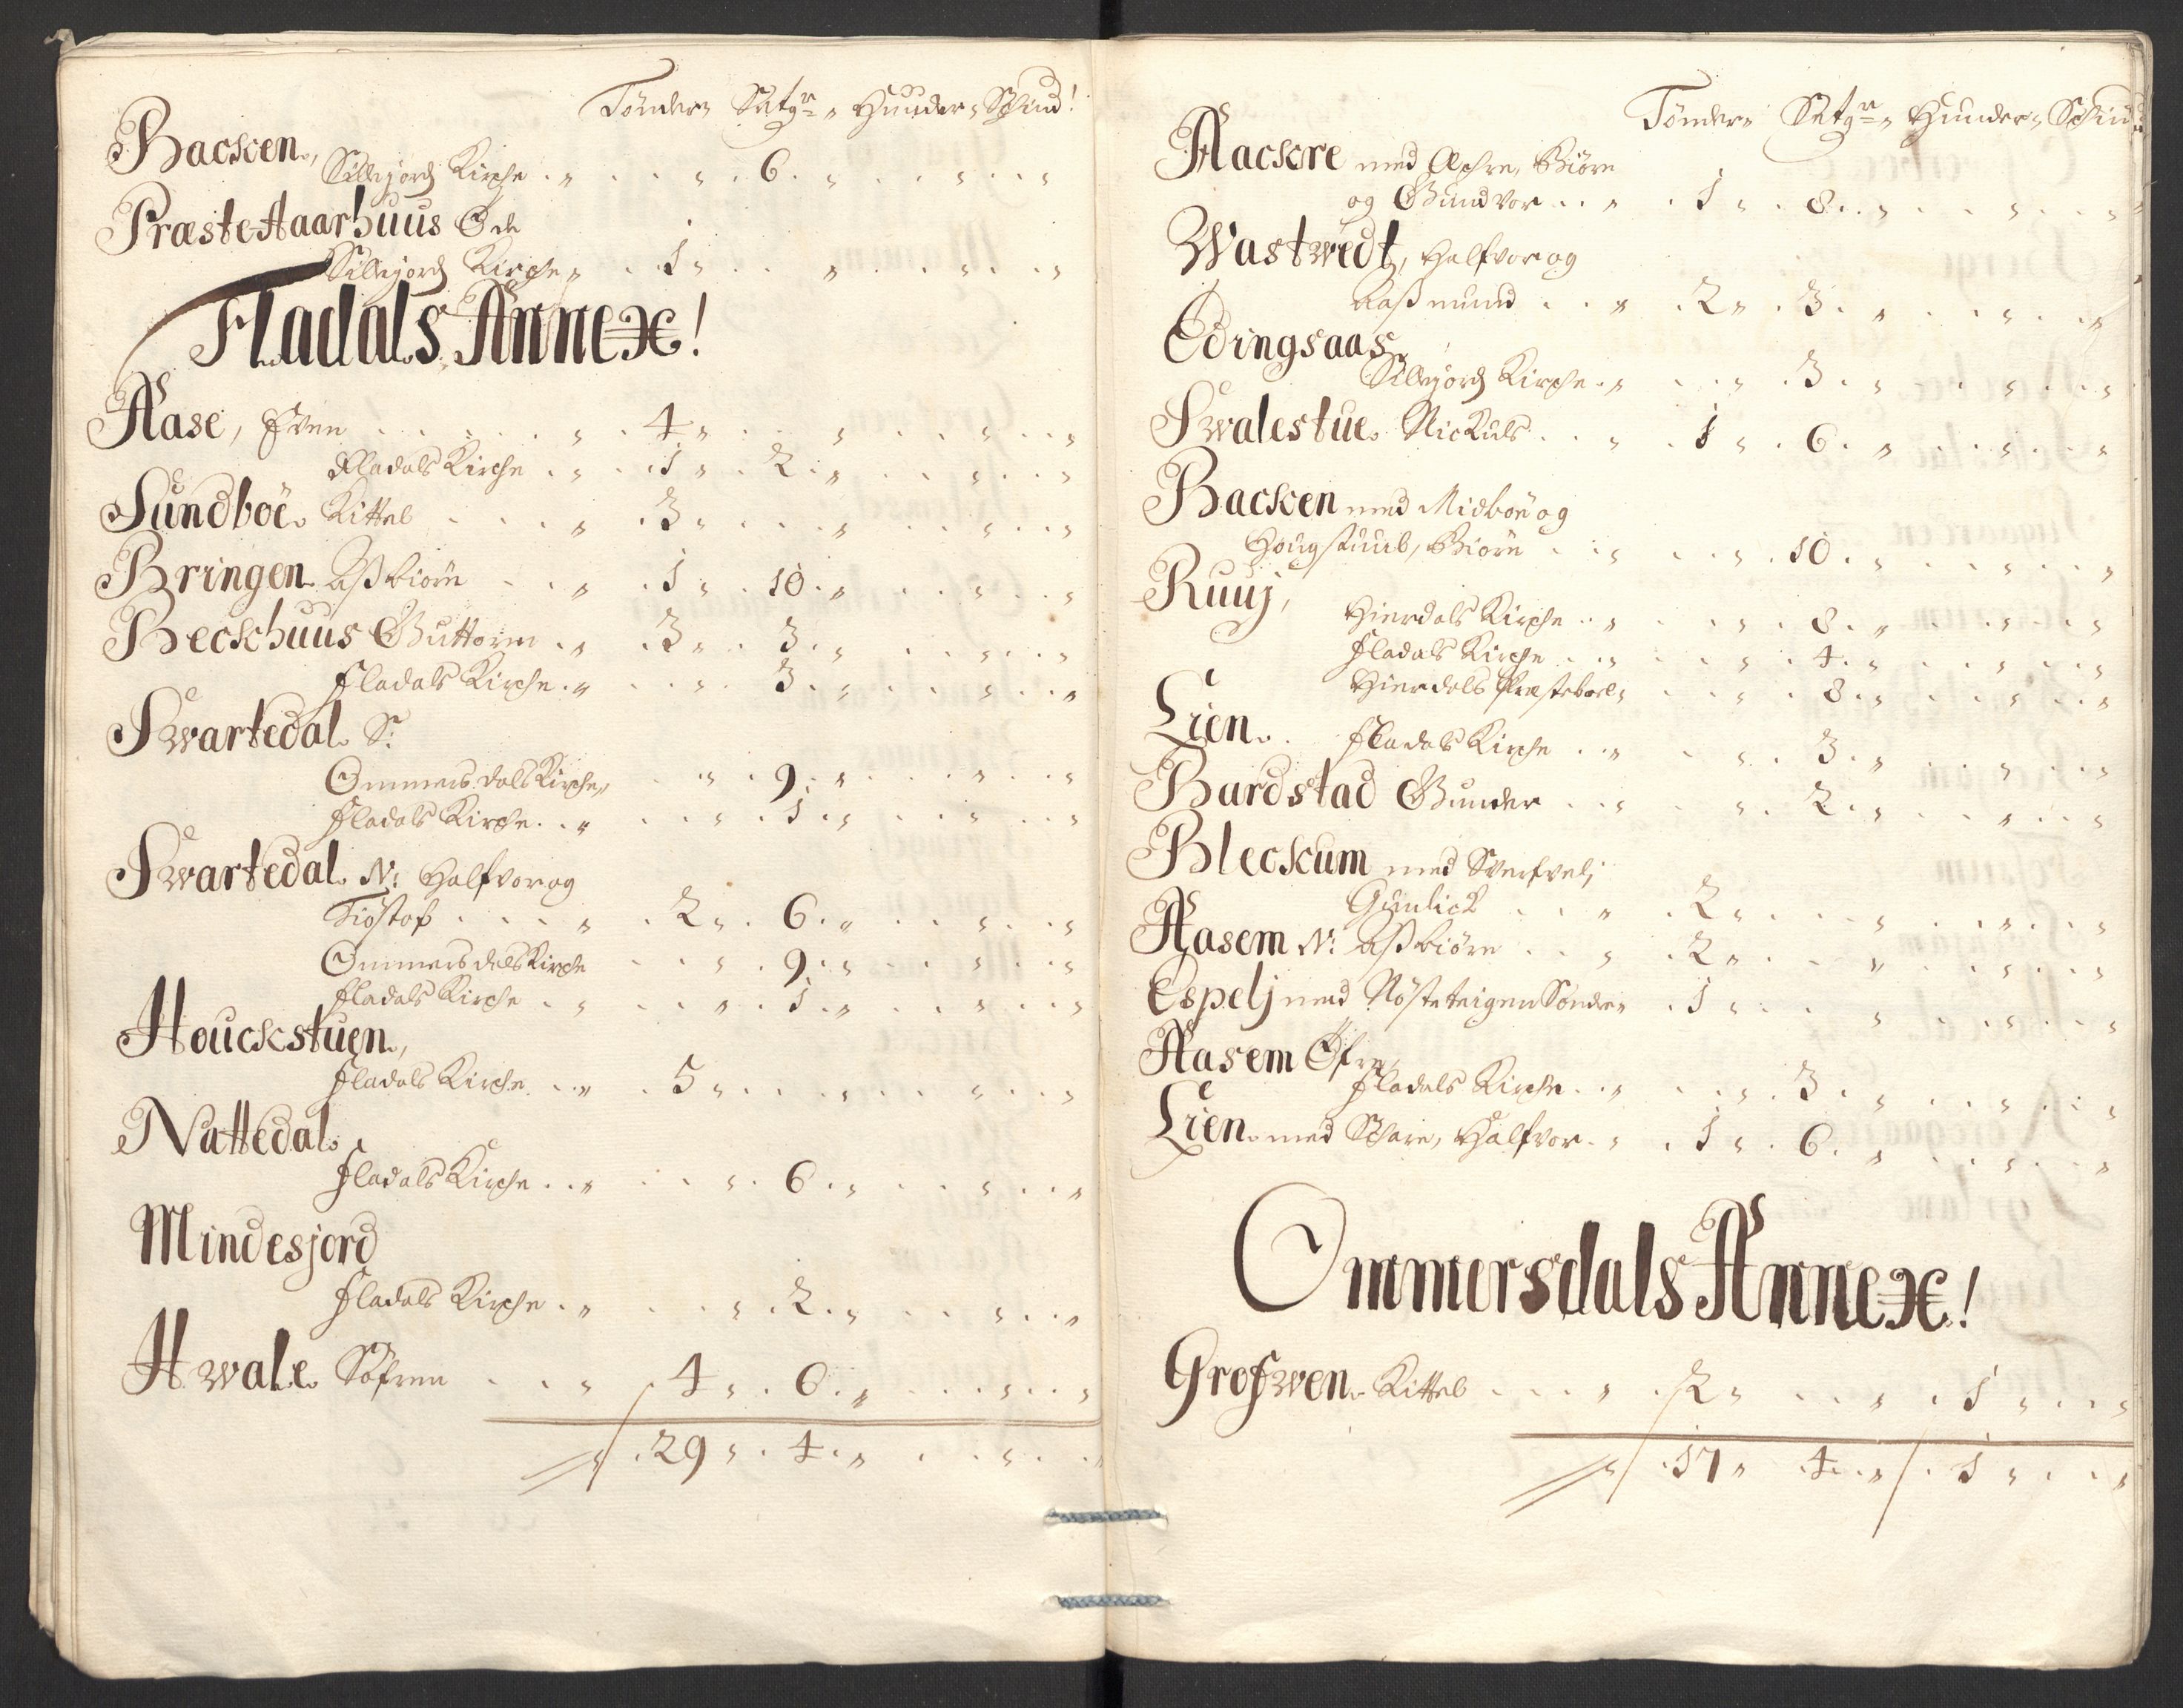 Tønder Setgr Hunder Schind!
Backen,
Sillejord Kirche . 6.
PræsteAaarhuus Øde
Sillejord Kirche . 1
Fladals Annex!
Aase, Even . 4
Fladals Kirche . 1 . 2
Sundböe. Kittel . 3
Bringen. Aßbiörn . 1 . 10.
Beckhuus Guttorm . 3 . 3.
Fladals Kirche . 3.
Swartedal. S:
Ommersdals Kirche . 9.
Fladals Kirche . 1.
Swartedal. N: Halfvor og
Tiostof . 2 . 6.
Ommersdals Kirche . 9.
Fladals Kirche . 1.
Houckstuen,
Fladals Kirche . 5
Nattedal.
Fladals Kirche . 6.
Mindesjord
Fladals Kirche . 2.
Hwale. Söfren . 4 . 6.
29 . 4.
Tønder Setgr Hunder Schind
Aackre med Øchre, Biörn
og Gundvor . 1 . 8.
Wastwedt, Halfvor og
Aaßmund . 2 . 3.
Edingsaas,
Sillejord Kirche . 3.
Swalestue. Nickuls . 1 . 6.
Backen med Midböe og
Hougstuul, Biörn . 10.
Ruuj,
Hierdals Kirche . 8.
Fladals Kirche . 4.
Hierdals Præsteboel . 8.
Lien. Fladals Kirche . 3.
Burdstad Gunder . 2.
Bleckum med Sverfveli
Gunlick . 2
Aasem N: Aßbiörn . 2
Espelj med Nösteteigen Sønder . 1
Aasem Øfre,
Fladals Kirche . 3.
Lien. med Schare, Halfvor . 1 . 6.
Ommersdals Annex!
Grofwen. Kittel . 2 . 1
17 4. . 1